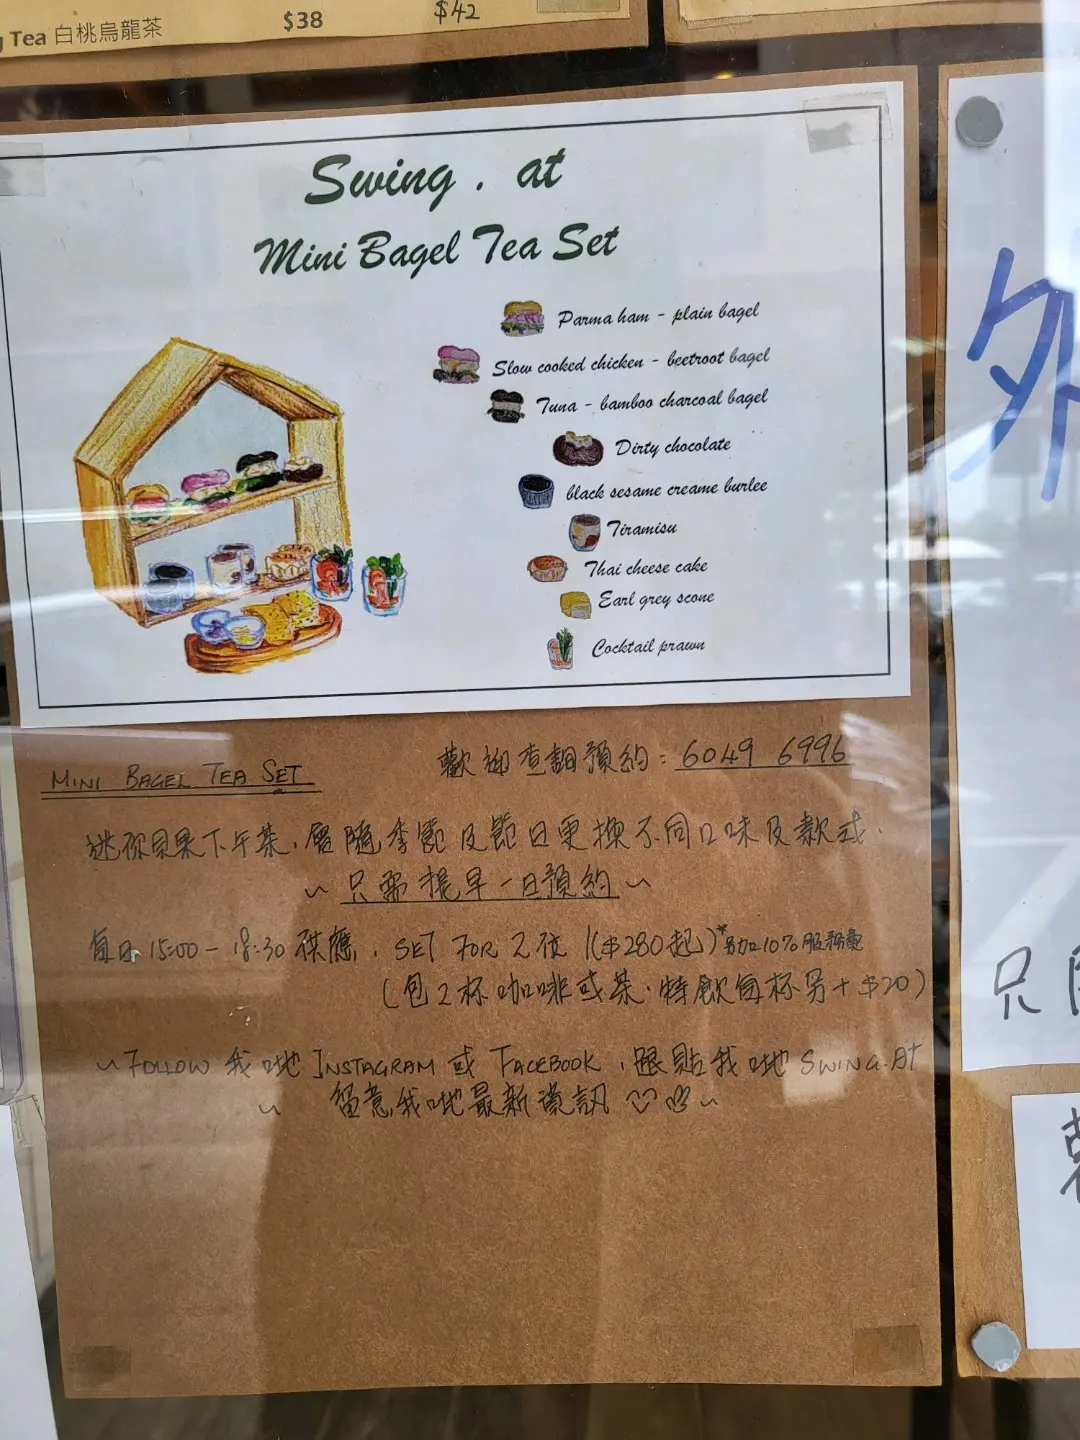 Tea 白桃烏龍茶 $38 $42
Swing . at
Mini Bagel Tea Set
Parma ham - plain bagel
Slow cooked chicken - beetroot bagel
Tuna - bamboo charcoal bagel
Dirty chocolate
black sesame creame burlee
Tiramisu
Thai cheese cake
Earl grey scone
Cocktail prawn
歡迎查詢預約: 6049 6996
MINI BAGEL TEA SET
迷你貝果下午茶，會隨季節及節日更換不同口味及款式.
~ 只需提早一日預約 ~
每日 15:00 - 18:30 供應. SET FOR 2位 ($280起)*另加10%服務費
(包2杯咖啡或茶.特飲每杯另+$20)
~ FOLLOW 我哋 INSTAGRAM 或 FACEBOOK, 跟貼我哋 SWING.AT
~ 留意我哋最新資訊 ~
外
只